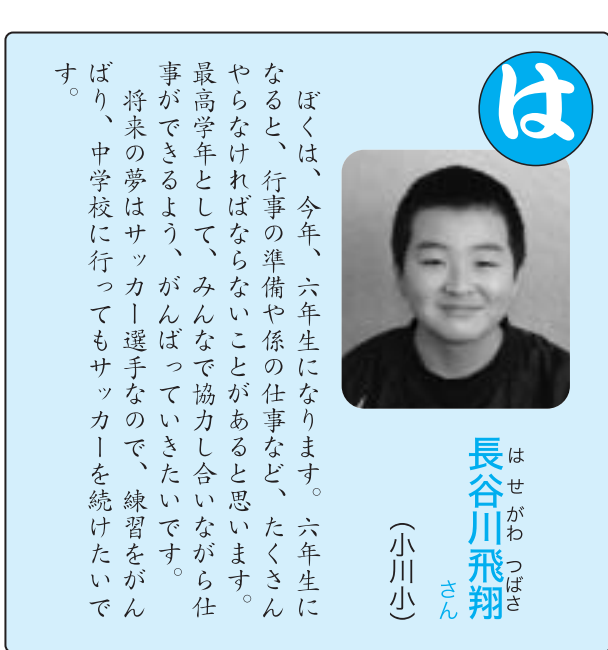 は
はせがわ つばさ
長谷川飛翔
さん
（小川小）
ぼくは、今年、六年生になります。六年生に
なると、行事の準備や係の仕事など、たくさん
やらなければならないことがあると思います。
最高学年として、みんなで協力し合いながら仕
事ができるよう、がんばっていきたいです。
将来の夢はサッカー選手なので、練習をがん
ばり、中学校に行ってもサッカーを続けたいで
す。